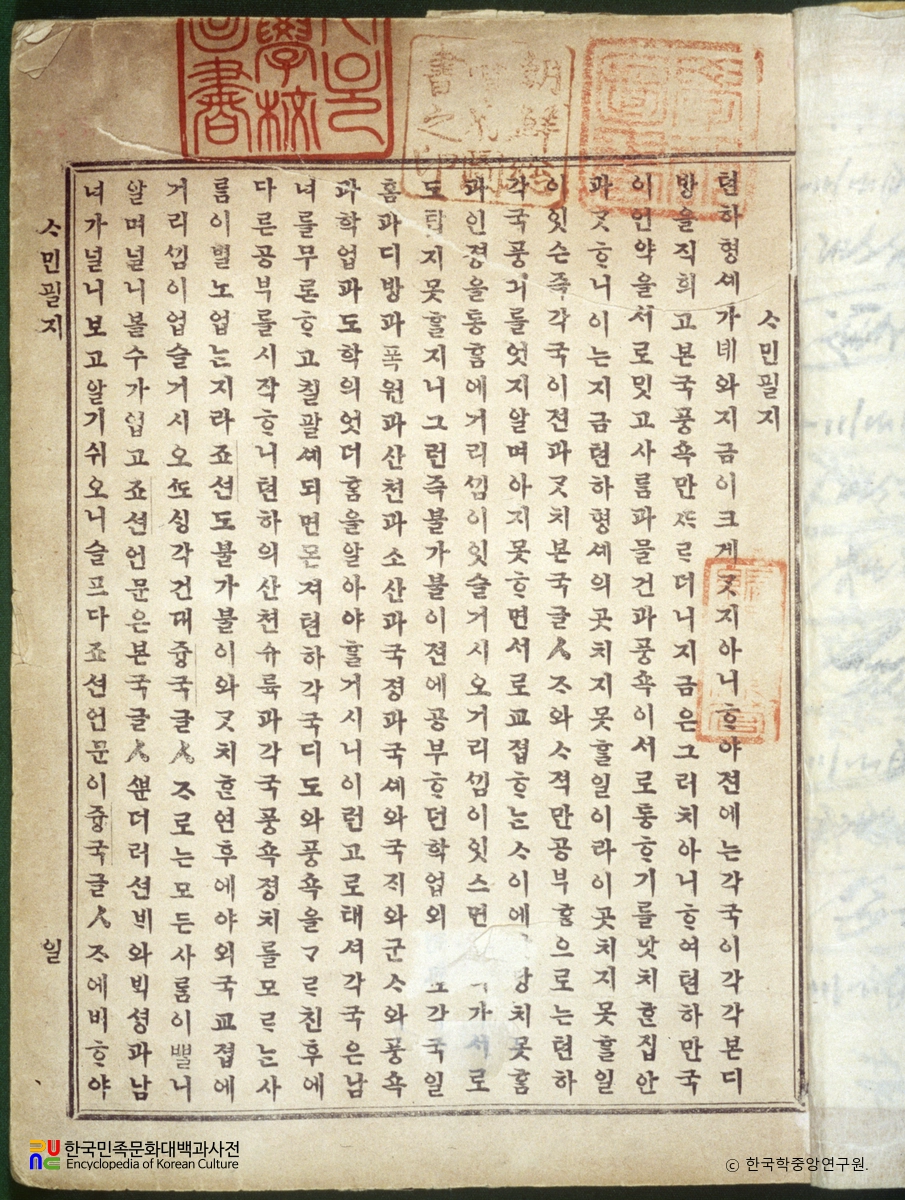 ᄉᆞ민필지
텬하형셰가녜와지금이크게ᄀᆞᆺ지아니ᄒᆞ야젼에는각국이각각본디
방을직희고본국풍쇽만ᄯᆞᄅᆞ더니지금은그러치아니ᄒᆞ여텬하만국
이언약을서로밋고사ᄅᆞᆷ과물건과풍쇽이서로통ᄒᆞ기를맛치ᄒᆞᆫ집안
과ᄀᆞᆺᄒᆞ니이는지금텬하형셰의곳치지못ᄒᆞᆯ일이라이곳치지못ᄒᆞᆯ일
이잇슨즉각국이젼과ᄀᆞᆺ치본국글ㅅᄌᆞ와ᄉᆞ젹만공부ᄒᆞᆷ으로는텬하
각국풍긔를엇지알며아지못ᄒᆞ면서로교졉ᄒᆞ는ᄉᆞ이에당치못ᄒᆞᆷ
과인졍을통ᄒᆞᆷ에거리ᄭᅵᆷ이잇슬거시오거리ᄭᅵᆷ이잇스면가서로
도탑지못ᄒᆞᆯ지니그런즉불가불이젼에공부ᄒᆞ던학업외각국일
홈과디방과폭원과산쳔과소산과국졍과국셰와국ᄌᆡ와군ᄉᆞ와풍쇽
과학업과도학의엇더ᄒᆞᆷ을알아야ᄒᆞᆯ거시니이런고로태셔각국은남
녀를무론ᄒᆞ고칠팔셰되면몬져텬하각국디도와풍쇽을ᄀᆞᄅᆞ친후에
다른공부를시작ᄒᆞ니텬하의산쳔슈륙과각국풍쇽졍치를모ᄅᆞ는사
ᄅᆞᆷ이별노업는지라죠션도불가불이와ᄀᆞᆺ치ᄒᆞᆫ연후에야외국교졉에
거리ᄭᅵᆷ이업슬거시오ᄯᅩᄉᆡᆼ각건대즁국글ㅅᄌᆞ로는모든사ᄅᆞᆷ이ᄲᆞᆯ니
알며널니볼수가업고죠션언문은본국글ㅅᄲᅮᆫ더러션ᄇᆡ와ᄇᆡᆨ셩과남
녀가널니보고알기쉬오니슬프다죠션언문이즁국글ㅅᄌᆞ에비ᄒᆞ야
ᄉᆞ민필지 일
한국민족문화대백과사전
Encyclopedia of Korean Culture
ⓒ 한국학중앙연구원.